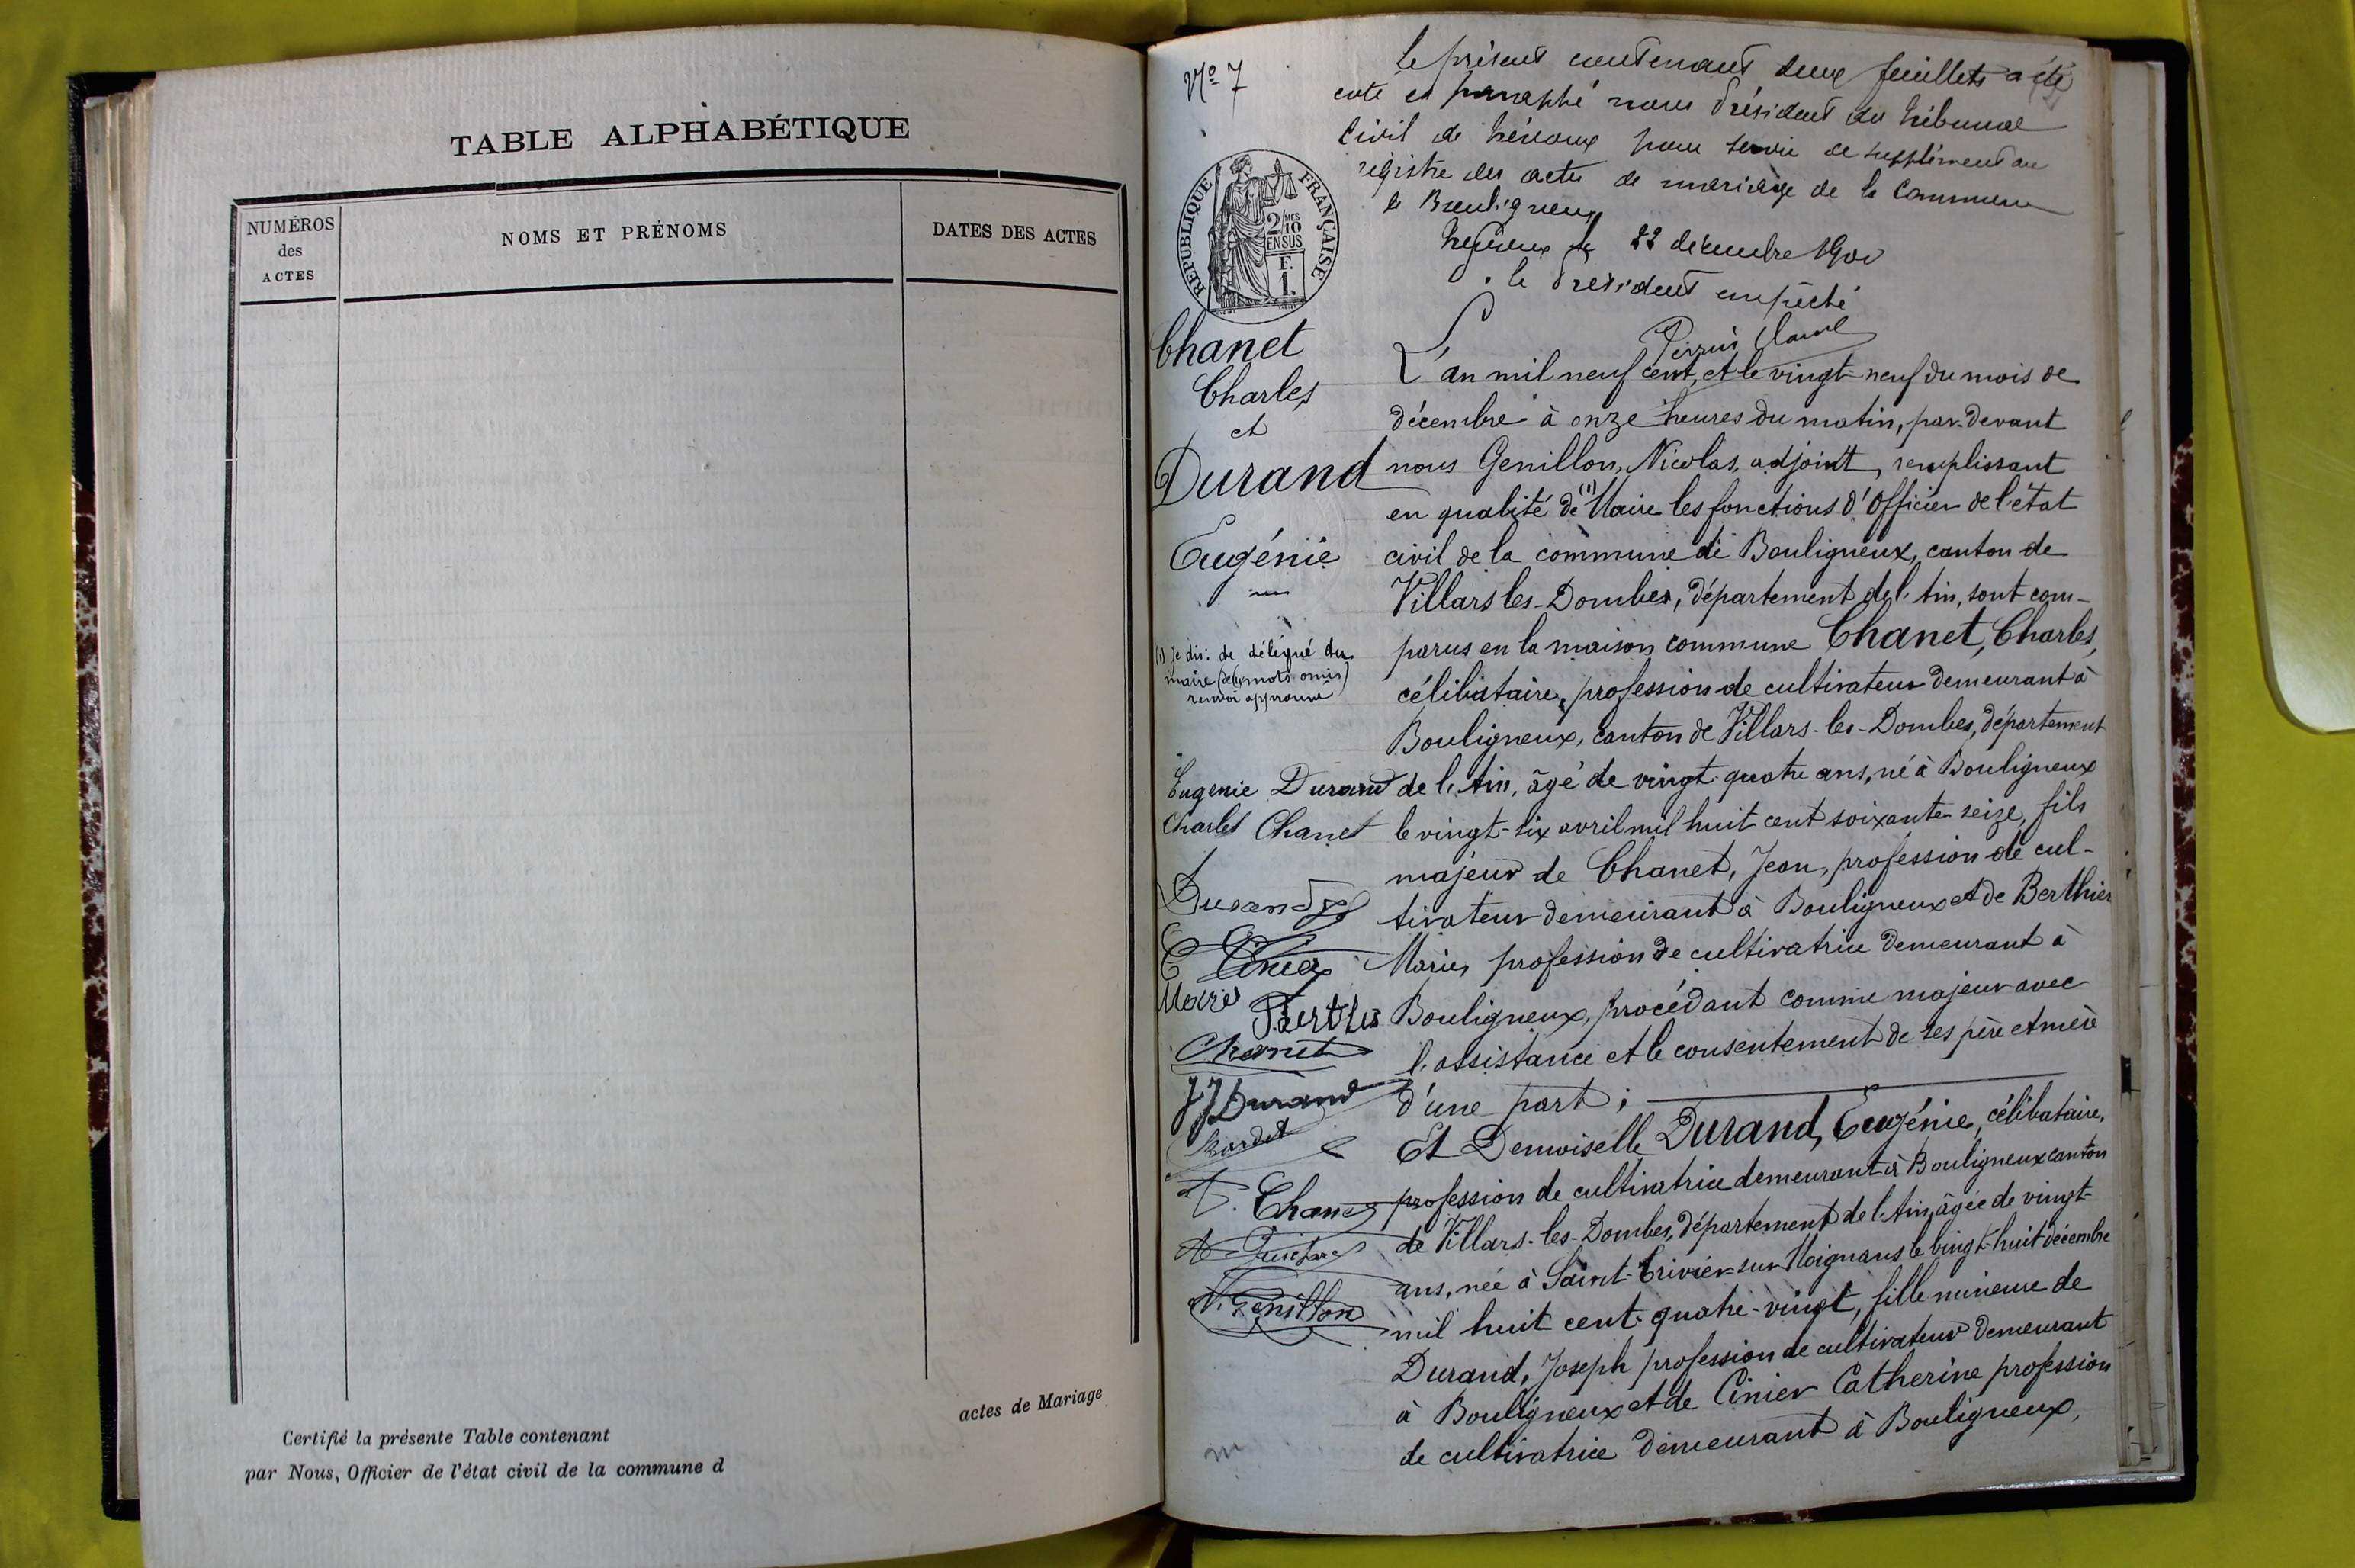 TABLE ALPHABÉTIQUE
NUMÉROS
des
ACTES
NOMS ET PRÉNOMS
DATES DES ACTES
Certifié la présente Table contenant
actes de Mariage
par Nous, Officier de l'état civil de la commune d
No 7
Le présent contenant deux feuillets a été
coté et paraphé nous Président du tribunal
Civil de Trévoux pour servir de supplément au
registre des actes de mariage de la Commune
de Bouligneux
Trévoux le 22 décembre 1900
le Président empêché
RÉPUBLIQUE FRANÇAISE
2/10 MES
EN SUS
F.
1.
Chanet
Charles
et
Durand
Eugénie
(1) Je dis: de délégué du
maire (deux mots omis)
renvoi approuvé
Eugenie Durand
Charles Chanet
Durand
C Cinier
Marie Berthier
Chanet
JJ Durand
Chanet
N. Genillon
L'an mil neuf cent, et le vingt-neuf du mois de
décembre à onze heures du matin, par-devant
nous Genillon, Nicolas, adjoint, remplissant
en qualité de (1) Maire les fonctions d'Officier de l'état
civil de la commune de Bouligneux, canton de
Villars les-Dombes, département de l'Ain, sont com-
parus en la maison commune Chanet, Charles,
célibataire, profession de cultivateur demeurant à
Bouligneux, canton de Villars-les-Dombes, département
de l'Ain, âgé de vingt-quatre ans, né à Bouligneux
le vingt-six avril mil huit cent soixante-seize, fils
majeur de Chanet, Jean, profession de cul-
tivateur demeurant à Bouligneux et de Berthier
Marie, profession de cultivatrice demeurant à
Bouligneux, procédant comme majeur avec
l'assistance et le consentement de ses père et mère
d'une part;
Et Demoiselle Durand, Eugénie, célibataire,
profession de cultivatrice demeurant à Bouligneux canton
de Villars-les-Dombes, département de l'Ain, âgée de vingt-
ans, née à Saint-Trivier-sur-Moignans le vingt-huit décembre
mil huit cent-quatre-vingt, fille mineure de
Durand, Joseph profession de cultivateur demeurant
à Bouligneux et de Cinier Catherine profession
de cultivatrice demeurant à Bouligneux,